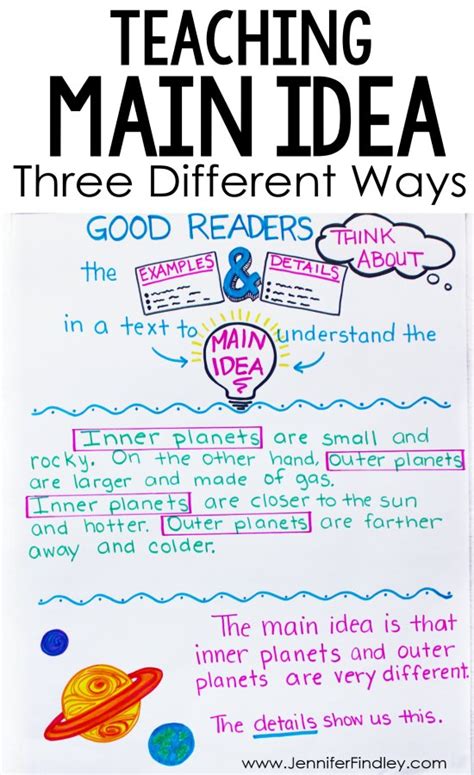 TEACHING
MAIN IDEA
Three Different Ways
GOOD READERS THINK
ABOUT
the EXAMPLES & DETAILS
in a text to MAIN IDEA understand the
Inner planets are small and
rocky. On the other hand, Outer planets
are larger and made of gas.
Inner planets are closer to the sun
and hotter. Outer planets are farther
away and colder.
The main idea is that
inner planets and outer
planets are very different.
The details show us this.
www.JenniferFindley.com